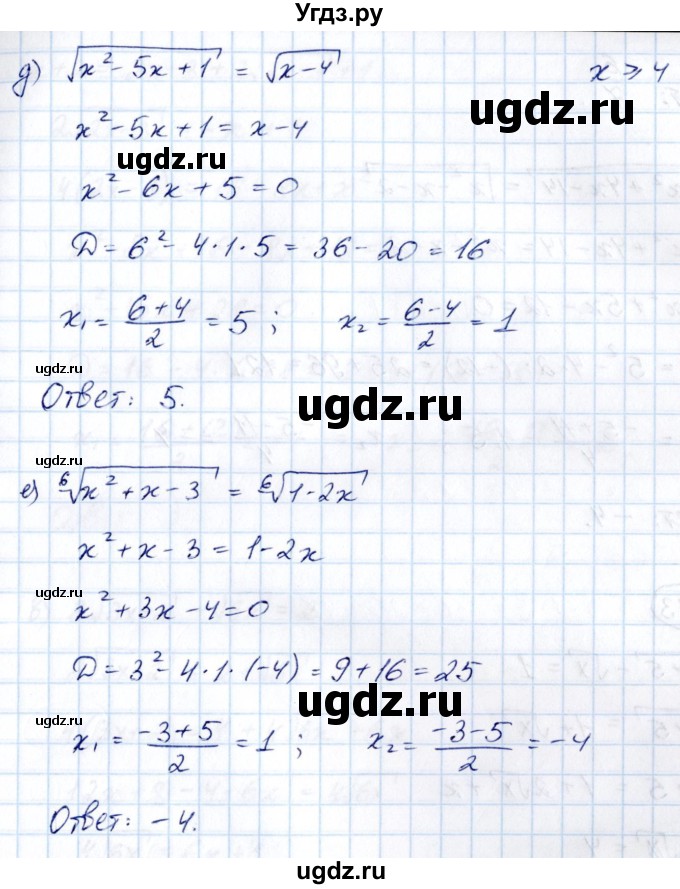 Угдз.ру
д) √(x² - 5x + 1) = √(x - 4)    x ⩾ 4
ugdz.ru
x² - 5x + 1 = x - 4
ugdz.ru
x² - 6x + 5 = 0
ugdz.ru
Д = 6² - 4·1·5 = 36 - 20 = 16
x₁ = (6+4)/2 = 5 ;    x₂ = (6-4)/2 = 1
ugdz.ru
Ответ: 5.
ugdz.ru
е) ⁶√(x² + x - 3) = ⁶√(1 - 2x)
x² + x - 3 = 1 - 2x
ugdz.ru
x² + 3x - 4 = 0
ugdz.ru
Д = 3² - 4·1·(-4) = 9 + 16 = 25
ugdz.ru
x₁ = (-3+5)/2 = 1 ;    x₂ = (-3-5)/2 = -4
Ответ: -4.
ugdz.ru
ugdz.ru